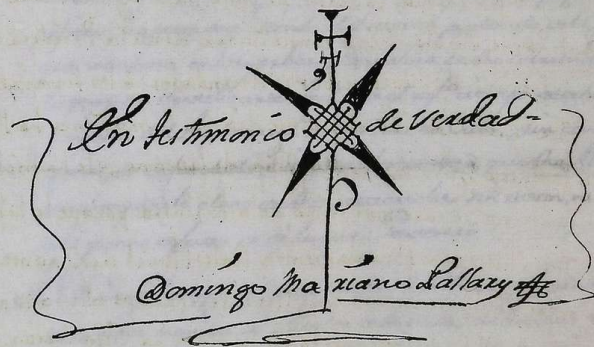 En testimonio de Verdad=
Domingo Mariano Pallary